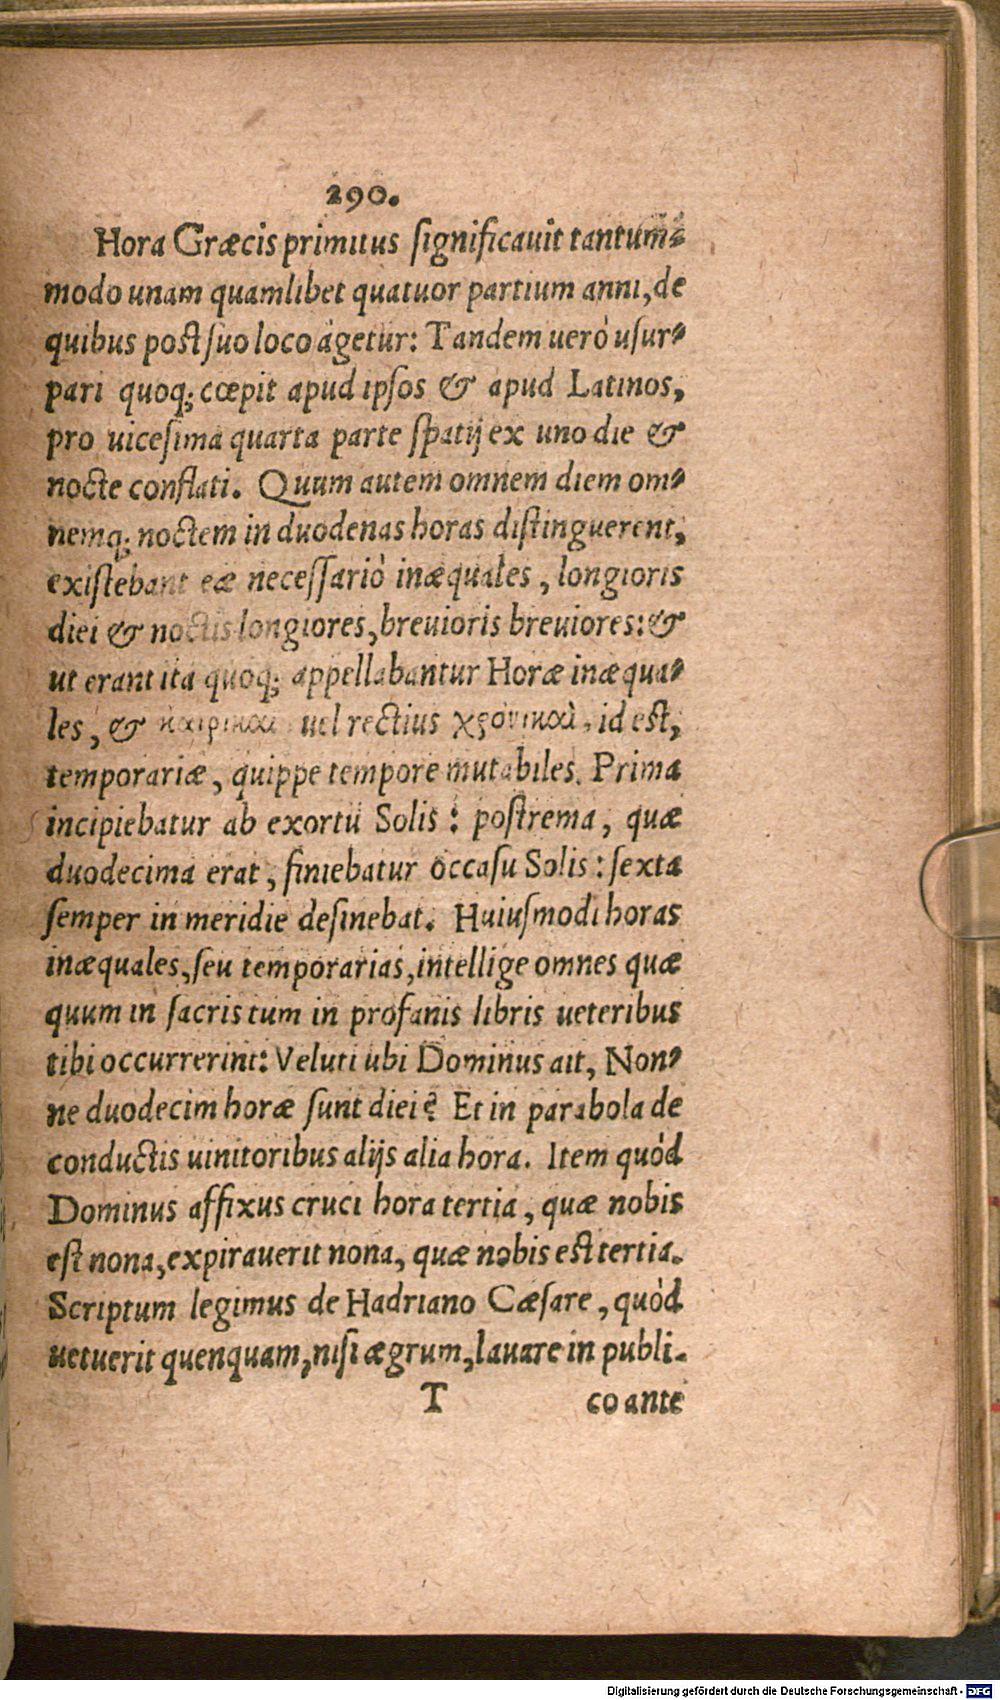 290.
Hora Græcis primitus ſignificauit tantum⸗
modo unam quamlibet quatuor partium anni, de
quibus poſt ſuo loco agetur: Tandem uerò uſur⸗
pari quoq; cœpit apud ipſos & apud Latinos,
pro uiceſima quarta parte ſpatij ex uno die &
nocte conflati. Quum autem omnem diem om⸗
nemq; noctem in duodenas horas diſtinguerent,
exiſtebant eæ neceſſariò inæquales, longioris
diei & noctis longiores, breuioris breuiores: &
ut erant ita quoq; appellabantur Horæ inæqua⸗
les, & καιρικαὶ uel rectius χρονικαὶ, id eſt,
temporariæ, quippe tempore mutabiles. Prima
incipiebatur ab exortu Solis: poſtrema, quæ
duodecima erat, finiebatur occaſu Solis: ſexta
ſemper in meridie deſinebat. Huiuſmodi horas
inæquales, ſeu temporarias, intellige omnes quæ
quum in ſacris tum in profanis libris ueteribus
tibi occurrerint: Veluti ubi Dominus ait, Non⸗
ne duodecim horæ ſunt diei? Et in parabola de
conductis uinitoribus alijs alia hora. Item quòd
Dominus affixus cruci hora tertia, quæ nobis
eſt nona, expirauerit nona, quæ nobis eſt tertia.
Scriptum legimus de Hadriano Cæſare, quòd
uetuerit quenquam, niſi ægrum, lauare in publi-
T co ante
Digitalisierung gefördert durch die Deutsche Forschungsgemeinschaft - DFG